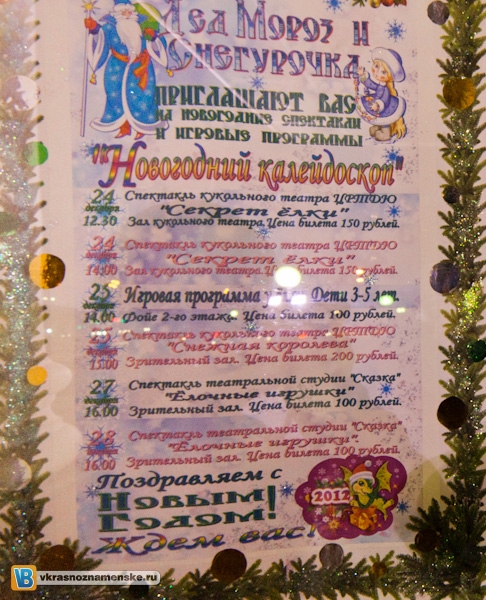 Дед Мороз и
Снегурочка
приглашают вас
на новогодние спектакли
и игровые программы
"Новогодний калейдоскоп"
24 декабря 12.30
Спектакль кукольного театра ЦРТДЮ
"Секрет ёлки"
Зал кукольного театра. Цена билета 150 рублей.
24 декабря 14.00
Спектакль кукольного театра ЦРТДЮ
"Секрет ёлки"
Зал кукольного театра. Цена билета 150 рублей.
25 декабря 14.00
Игровая программа у Дети 3-5 лет.
Фойе 2-го этажа. Цена билета 100 рублей.
15.00
Спектакль кукольного театра ЦРТДЮ
"Снежная королева"
Зрительный зал. Цена билета 200 рублей.
27 декабря 16.00
Спектакль театральной студии "Сказка"
"Ёлочные игрушки"
Зрительный зал. Цена билета 100 рублей.
28 декабря 16.00
Спектакль театральной студии "Сказка"
"Ёлочные игрушки"
Зрительный зал. Цена билета 100 рублей.
Поздравляем с
Новым
Годом!
Ждем вас!
2012
vkrasnoznamenske.ru